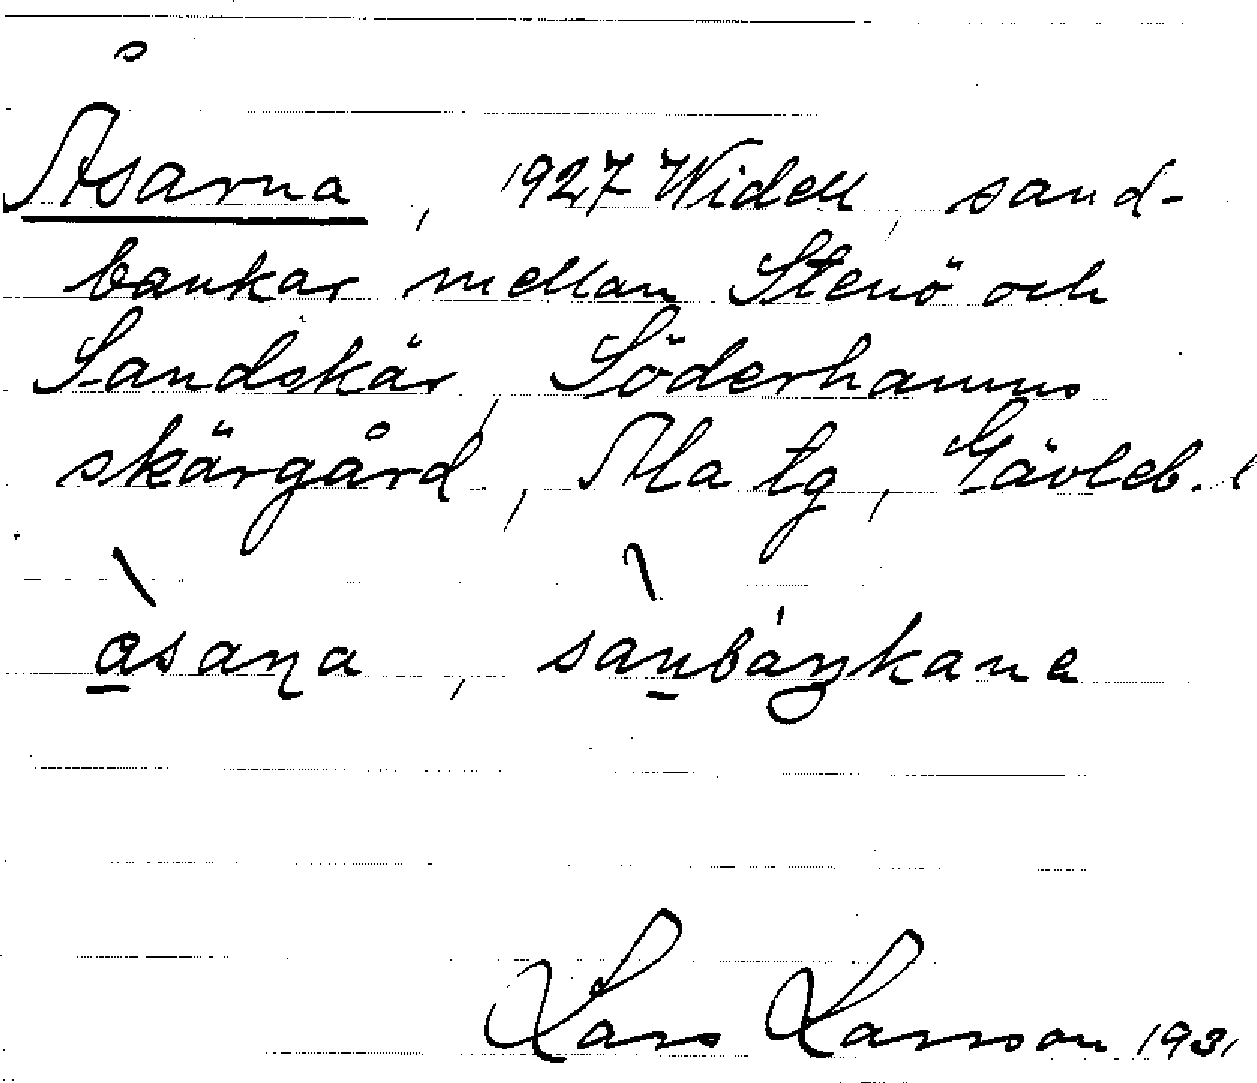 Åsarna, 1927 Widell, sand-
bankar mellan Stenö och
Sandskär, Söderhamns
skärgård, Ala tg, Gävleb. l
àsaṇa, sànbáŋkana
Lars Larsson 1931